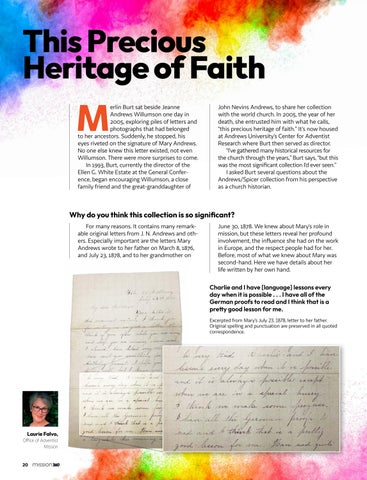 This Precious
Heritage of Faith
Merlin Burt sat beside Jeanne
Andrews Willumson one day in
2005, exploring piles of letters and
photographs that had belonged
to her ancestors. Suddenly, he stopped, his
eyes riveted on the signature of Mary Andrews.
No one else knew this letter existed, not even
Willumson. There were more surprises to come.
In 1993, Burt, currently the director of the
Ellen G. White Estate at the General Confer-
ence, began encouraging Willumson, a close
family friend and the great-granddaughter of
John Nevins Andrews, to share her collection
with the world church. In 2005, the year of her
death, she entrusted him with what he calls,
"this precious heritage of faith." It's now housed
at Andrews University's Center for Adventist
Research where Burt then served as director.
"I've gathered many historical resources for
the church through the years," Burt says, "but this
was the most significant collection I'd ever seen."
I asked Burt several questions about the
Andrews/Spicer collection from his perspective
as a church historian.
Why do you think this collection is so significant?
For many reasons. It contains many remark-
able original letters from J. N. Andrews and oth-
ers. Especially important are the letters Mary
Andrews wrote to her father on March 8, 1876,
and July 23, 1878, and to her grandmother on
June 30, 1878. We knew about Mary's role in
mission, but these letters reveal her profound
involvement, the influence she had on the work
in Europe, and the respect people had for her.
Before, most of what we knew about Mary was
second-hand. Here we have details about her
life written by her own hand.
Charlie and I have [language] lessons every
day when it is possible . . . I have all of the
German proofs to read and I think that is a
pretty good lesson for me.
Excerpted from Mary's July 23, 1878, letter to her father.
Original spelling and punctuation are preserved in all quoted
correspondence.
Charlie and I have
lessons every day when it is possible
and it is always possible except
when we are in a special hurry.
I think we make some progress.
I have all the German proofs to
read and I think that is a pretty
good lesson for me.
Laurie Falvo,
Office of Adventist
Mission
20 mission 360